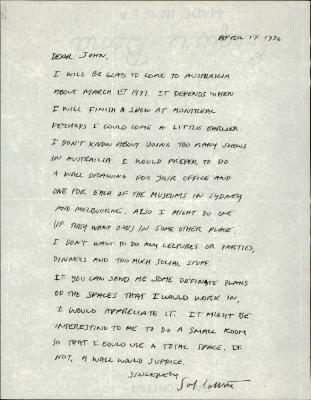 APRIL 17 1976
DEAR JOHN,
I WILL BE GLAD TO COME TO AUSTRAILIA
ABOUT MARCH 1ST 1977. IT DEPENDS WHEN
I WILL FINISH A SHOW AT MONTREAL
PERHAPS I COULD COME A LITTLE EARLIER.
I DON'T KNOW ABOUT DOING TOO MANY SHOWS
IN AUSTRAILIA I WOULD PREFER TO DO
A WALL DRAWING FOR YOUR OFFICE AND
ONE FOR EACH OF THE MUSEUMS IN SYDNEY
AND MELBOURNE. ALSO I MIGHT DO ONE
(IF THEY WANT ONE) IN SOME OTHER PLACE.
I DON'T WANT TO DO ANY LECTURES OR PARTIES,
DINNERS AND TOO MUCH SOCIAL STUFF.
IF YOU CAN SEND ME SOME DEFINATE PLANS
OF THE SPACES THAT I WOULD WORK IN,
I WOULD APPRECIATE IT. IT MIGHT BE
INTERESTING TO ME TO DO A SMALL ROOM
SO THAT I COULD USE A TOTAL SPACE. IF
NOT, A WALL WOULD SUFFICE.
SINCERELY,
Sol LeWitt